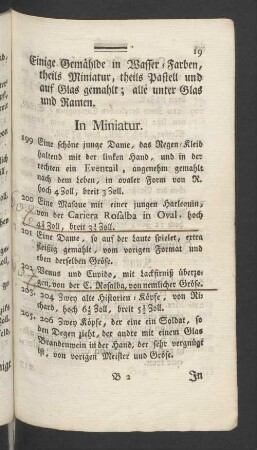 19
Einige Gemählde in Wasser-Farben,
theils Miniatur, theils Pastell und
auf Glas gemahlt; alle unter Glas
und Ramen.
In Miniatur.
199 Eine schöne junge Dame, das Regen-Kleid
haltend mit der linken Hand, und in der
rechten ein Eventail, angenehm gemahlt
nach dem Leben, in ovaler Form von R.
hoch 4 Zoll, breit 3 Zoll.
200 Eine Masque mit einer jungen Harlequin,
von der Cariera Rosalba in Oval. hoch
4½ Zoll, breit 3½ Zoll.
201 Eine Dame, so auf der Laute spielet, extra
fleißig gemahlt, von vorigen Format und
eben derselben Gröse.
202 Venus und Cupido, mit Lackfirniß überzo-
gen, von der C. Rosalba, von nemlicher Gröse.
203, 204 Zwey alte Historien-Köpfe, von Ri-
chard, hoch 6½ Zoll, breit 5½ Zoll.
205, 206 Zwey Köpfe, der eine ein Soldat, so
den Degen zieht, der andre mit einem Glas
Brandenwein in der Hand, der sehr vergnügt
ist, von vorigen Meister und Gröse.
B 2
In